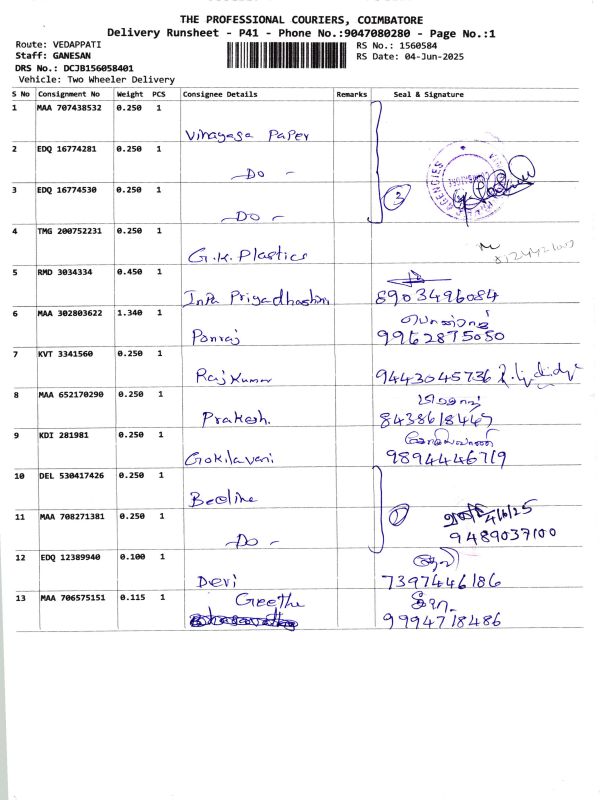 THE PROFESSIONAL COURIERS, COIMBATORE
Delivery Runsheet - P41 - Phone No.:9047080280 - Page No.:1
Route: VEDAPPATI RS No.: 1560584
Staff: GANESAN RS Date: 04-Jun-2025
DRS No.: DCJB156058401
Vehicle: Two Wheeler Delivery
S No Consignment No Weight PCS Consignee Details Remarks Seal & Signature
1 MAA 707438532 0.250 1
Vinayaga Paper
2 EDQ 16774281 0.250 1
- Do -
3 EDQ 16774530 0.250 1
- Do - 3
AGENCIES
4 TMG 200752231 0.250 1
G.K. Plastics
5 RMD 3034334 0.450 1
Priyadharshini 8903496084
6 MAA 302803622 1.340 1
Ponraj 9962875050
7 KVT 3341560 0.250 1
Rajkumar 9443045736
8 MAA 652170290 0.250 1
Prakesh. 8438618467
9 KDI 281981 0.250 1
Gokilavani 9894446719
10 DEL 530417426 0.250 1
Beeline
11 MAA 708271381 0.250 1 4/6/25
- Do - 9489037100
12 EDQ 12389940 0.100 1
Devi 7397446186
13 MAA 706575151 0.115 1 Geetha
9994718486